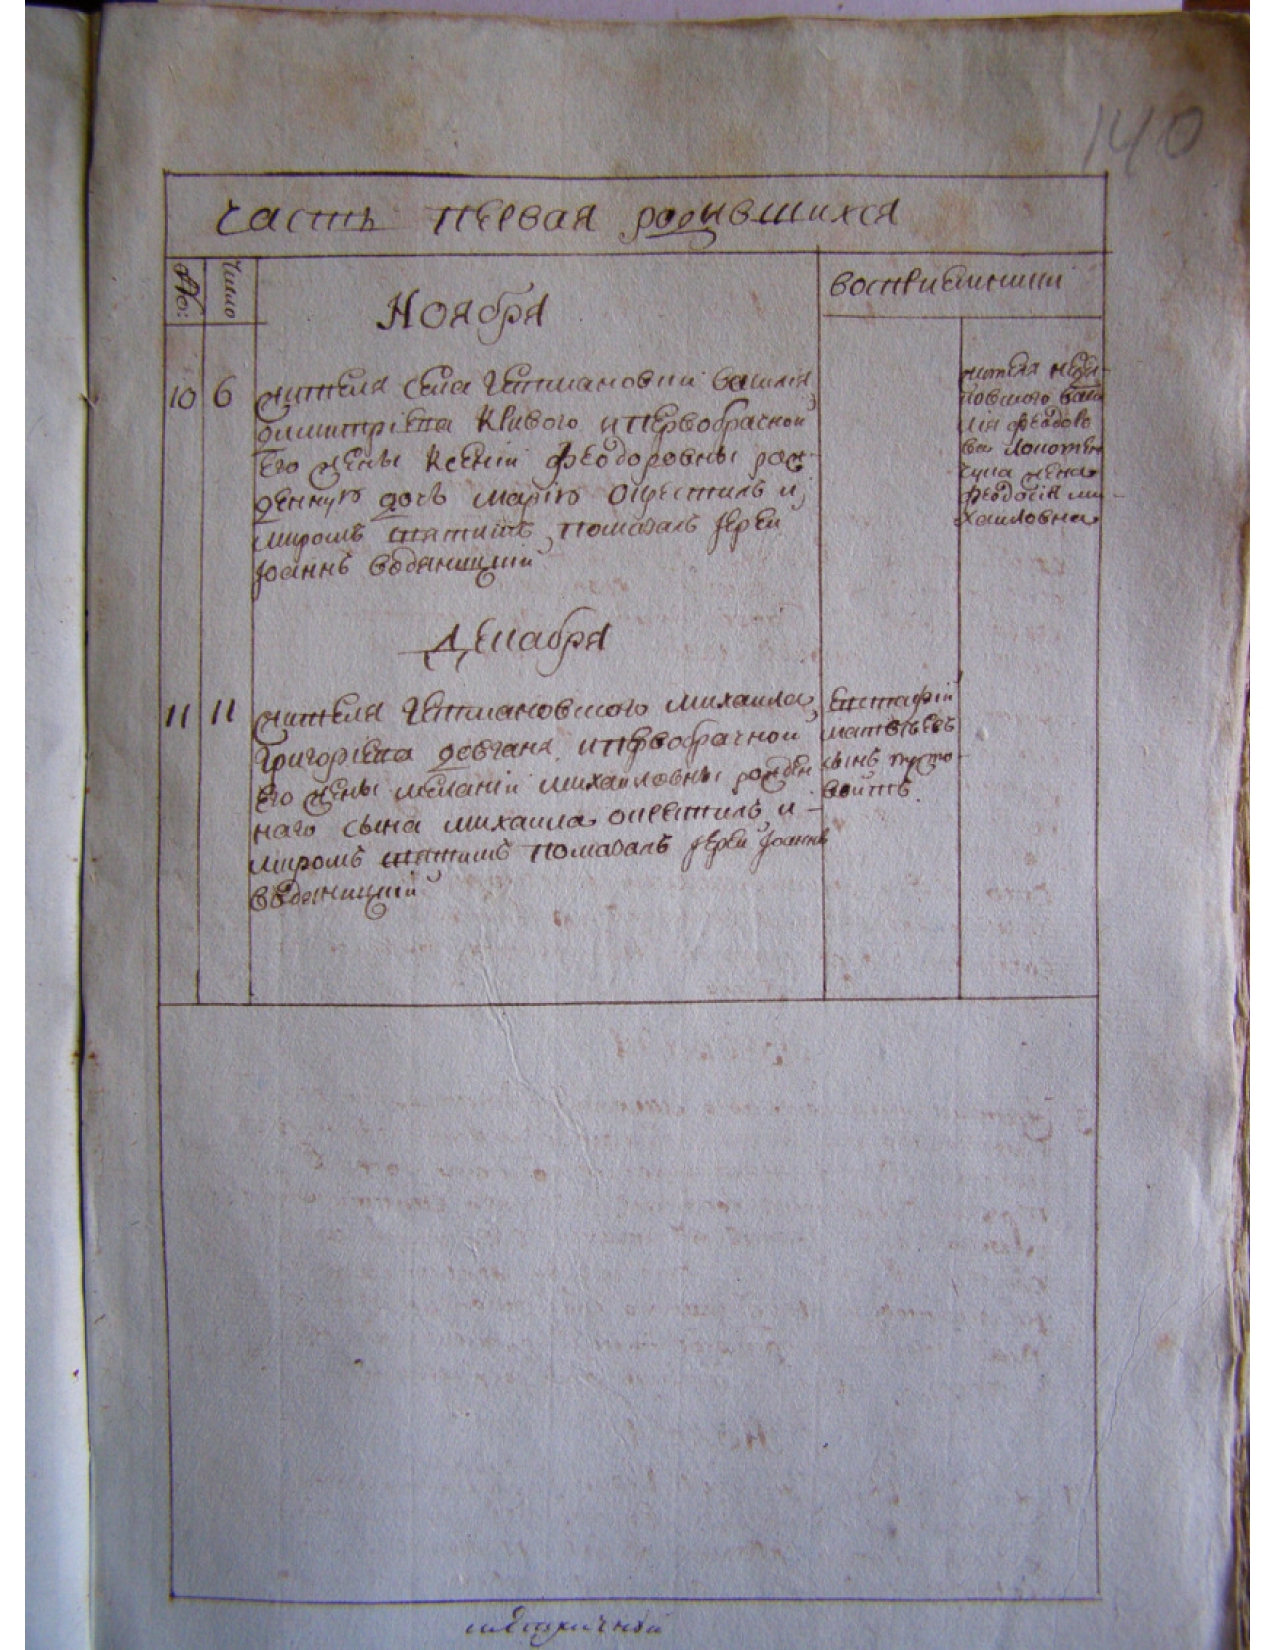 140
Часть первая родившихся
№:
Число
Ноября
восприемники
10 6 жителя села Гетмановки василія
димитріева Кривого и первобрачной
его жены Ксеніи феодоровны рож-
денную дочь марію окрестилъ и
миромъ святимъ помазалъ іерей
Іоаннъ воданицкій
жителя
повского васи
лія феодоро
ва
жена
феодосія ми-
хаиловна
Декабря
11 11 жителя Гетмановского михаила
Григоріева довганя и первобрачной
его жены меланіи михаиловны рожден
наго сына михаила окрестилъ и -
миромъ святимъ помазалъ іерей Іоаннъ
воданицкій
евстафій
матвѣевъ
сынъ пусто-
войтъ